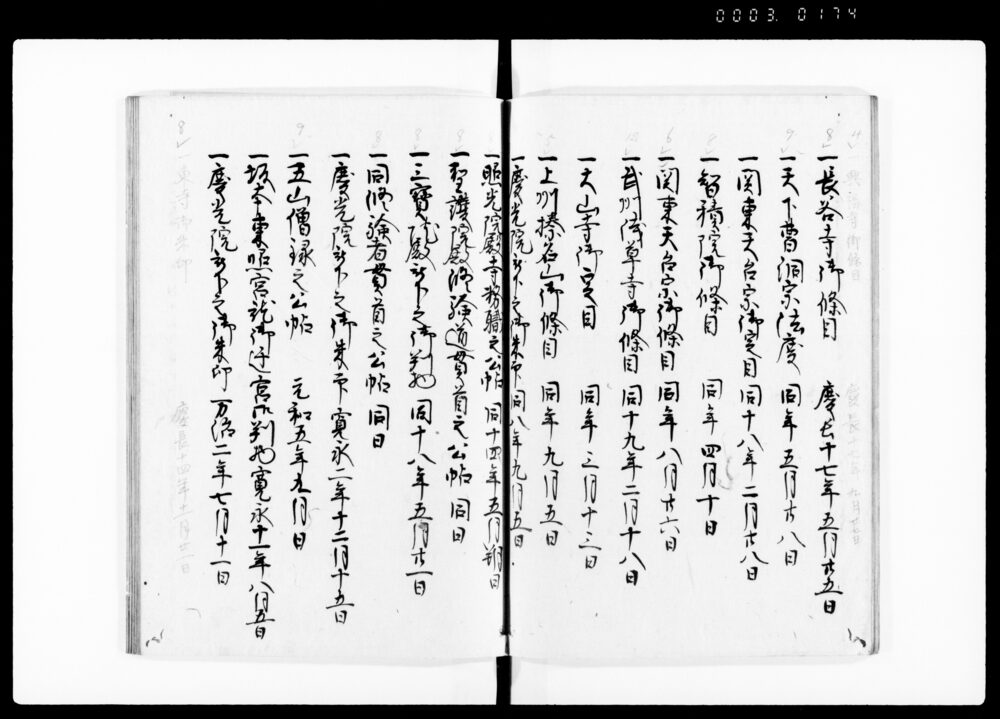 0003.0174
一長谷寺御條目 慶長十七年五月廿五日
一天下曹洞宗法度 同年五月廿八日
一関東天台宗御定目 同十八年二月廿八日
一智積院御條目 同年四月十日
一関東天台宗御條目 同年八月廿六日
一武州浅草寺御條目 同十九年二月十八日
一大山寺御定目 同年三月十三日
一上州榛名山御條目 同年九月五日
一慶光院被下之御朱印 同八年九月五日
一照光院殿寺務職之公帖 同十四年五月朔日
一聖護院殿修験道貫首之公帖 同日
一三寶院殿被下之御判物 同十八年五月廿一日
一同修験者貫首之公帖 同日
一慶光院被下之御朱印 寛永二年十二月十五日
一五山僧録之公帖 元和五年九月日
一坂本東照宮就御迁宮御判物 寛永十一年八月五日
一慶光院被下之御朱印 万治二年七月十一日